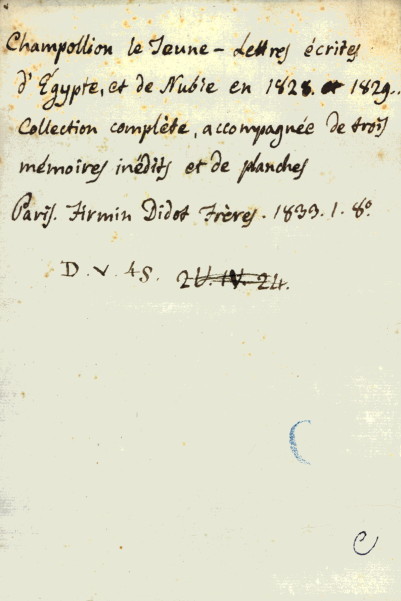 Champollion le Jeune - Lettres écrites
d'Égypte, et de Nubie en 1828. et 1829..
Collection complète, accompagnée de trois
mémoires inédits et de planches
Paris. Firmin Didot Frères. 1833. 1. 8°.
D. V. 48. 2U. IV. 24.
C